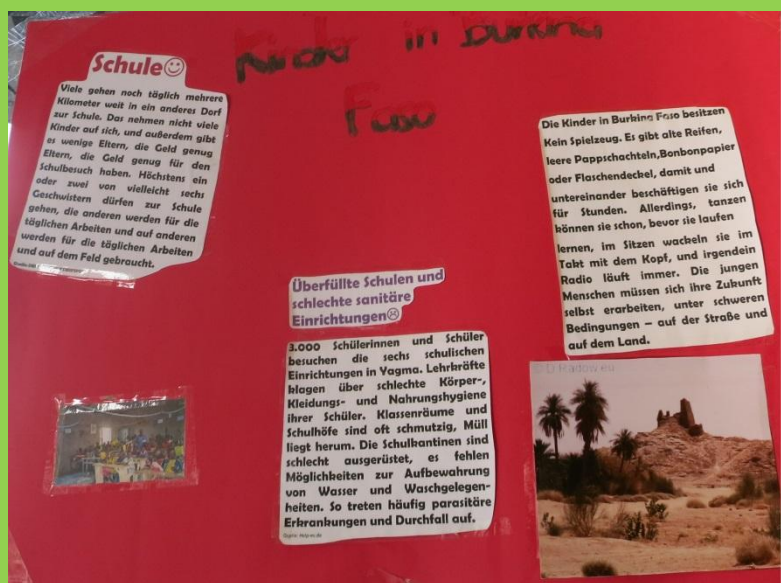 Kinder in Burkina
Faso
Schule☺
Viele gehen noch täglich mehrere
Kilometer weit in ein anderes Dorf
zur Schule. Das nehmen nicht viele
Kinder auf sich, und außerdem gibt
es wenige Eltern, die Geld genug
Eltern, die Geld genug für den
Schulbesuch haben. Höchstens ein
oder zwei von vielleicht sechs
Geschwistern dürfen zur Schule
gehen, die anderen werden für die
täglichen Arbeiten und auf anderen
werden für die täglichen Arbeiten
und auf dem Feld gebraucht.
Überfüllte Schulen und
schlechte sanitäre
Einrichtungen☹
3.000 Schülerinnen und Schüler
besuchen die sechs schulischen
Einrichtungen in Yagma. Lehrkräfte
klagen über schlechte Körper-,
Kleidungs- und Nahrungshygiene
ihrer Schüler. Klassenräume und
Schulhöfe sind oft schmutzig, Müll
liegt herum. Die Schulkantinen sind
schlecht ausgerüstet, es fehlen
Möglichkeiten zur Aufbewahrung
von Wasser und Waschgelegen-
heiten. So treten häufig parasitäre
Erkrankungen und Durchfall auf.
Die Kinder in Burkina Faso besitzen
Kein Spielzeug. Es gibt alte Reifen,
leere Pappschachteln,Bonbonpapier
oder Flaschendeckel, damit und
untereinander beschäftigen sie sich
für Stunden. Allerdings, tanzen
können sie schon, bevor sie laufen
lernen, im Sitzen wackeln sie im
Takt mit dem Kopf, und irgendein
Radio läuft immer. Die jungen
Menschen müssen sich ihre Zukunft
selbst erarbeiten, unter schweren
Bedingungen – auf der Straße und
auf dem Land.
© D Radow.eu